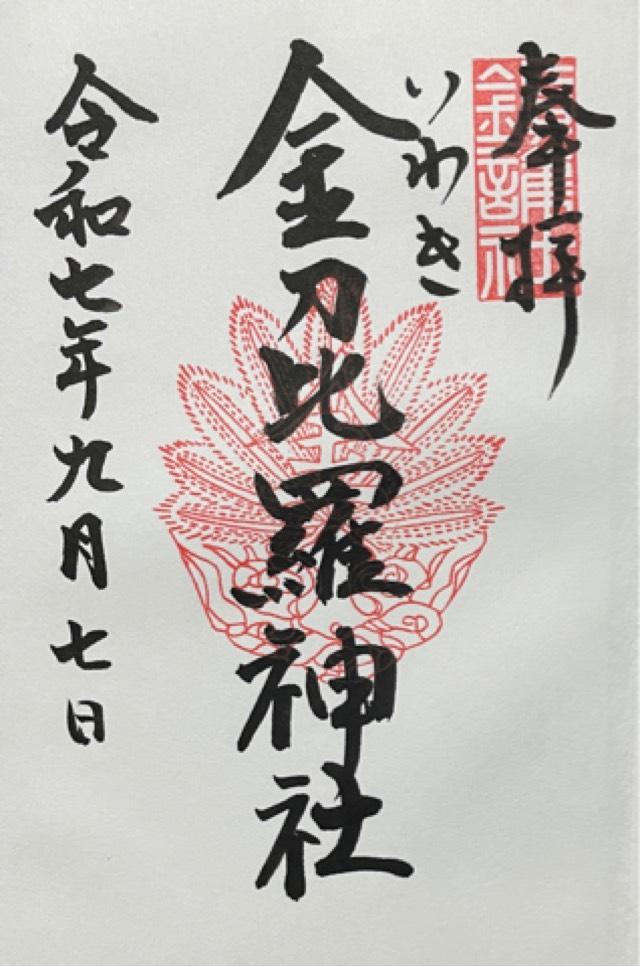 奉拝
いわき
金刀比羅神社
令和七年九月七日